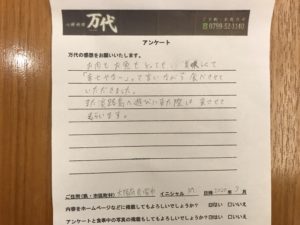 万代
ご予約・お問合せ
☎0799-52-1140
アンケート
万代の感想をお願いいたします。
お肉もお魚もとっても
「幸せやな～」って言いながら食べさせて
いただきました。
また淡路島へ遊びに来た際は 来させて
もらいます。
ご住所(県・市区町村) 大阪府 イニシャル 日時 2020年 月
内容をホームページなどに掲載してもよろしいでしょうか? □はい □いいえ
アンケートと食事中の写真の掲載してもよろしいでしょうか? □はい □いいえ